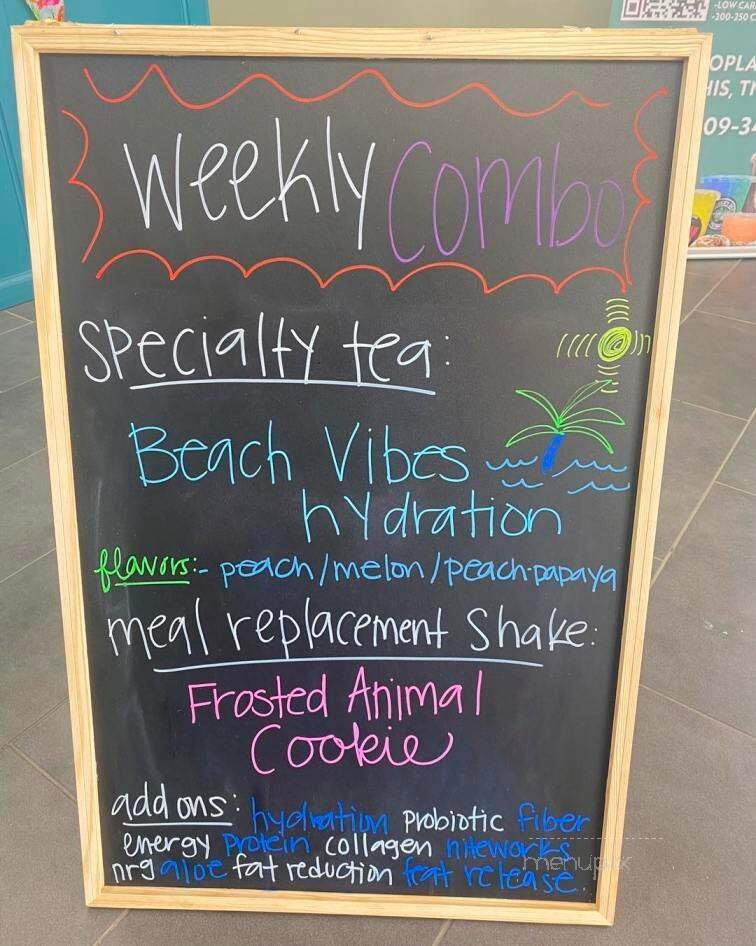 -LOW CAR
-200-250 C
OPLA
HIS, TN
09-34
Weekly Combo
Specialty tea:
Beach Vibes
hydration
flavors:- peach/melon/peach-papaya
meal replacement Shake:
Frosted Animal
Cookie
add ons: hydration probiotic fiber
energy protein collagen niteworks
nrg aloe fat reduction release
menupix